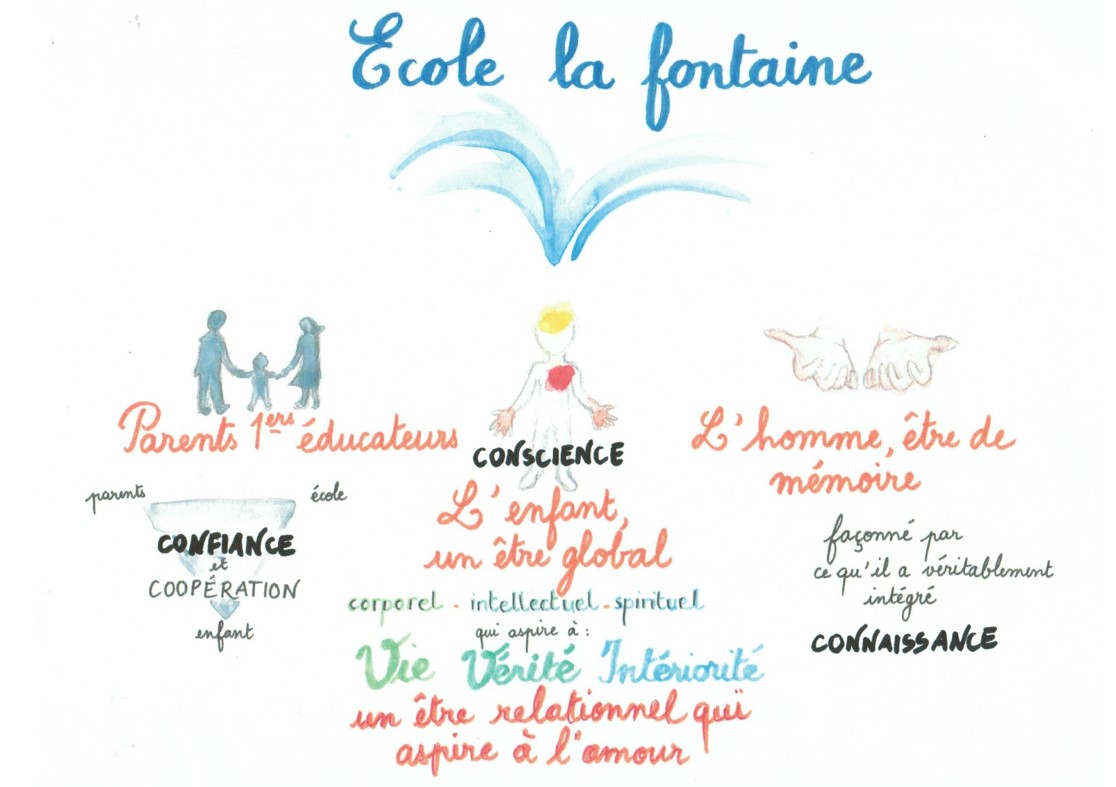 Ecole la fontaine
Parents 1ers éducateurs
parents
école
CONFIANCE
et
COOPÉRATION
enfant
CONSCIENCE
L'enfant,
un être global
corporel - intellectuel - spirituel
qui aspire à :
Vie Vérité Intériorité
un être relationnel qui
aspire à l'amour
L'homme, être de
mémoire
façonné par
ce qu'il a véritablement
intégré
CONNAISSANCE